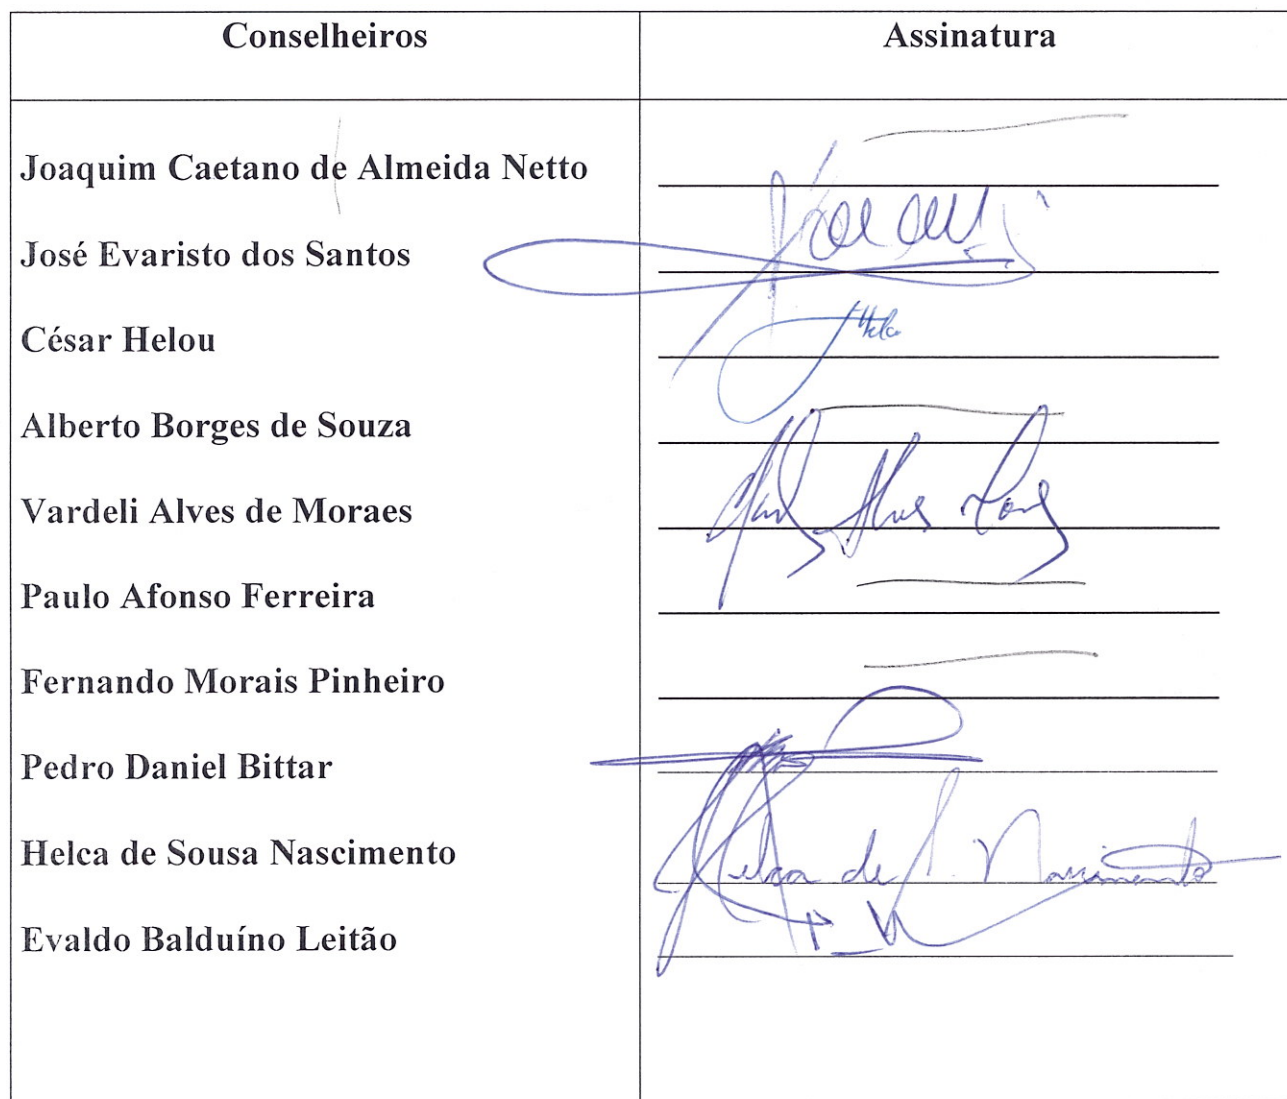 Conselheiros
Assinatura
Joaquim Caetano de Almeida Netto
José Evaristo dos Santos
César Helou
Alberto Borges de Souza
Vardeli Alves de Moraes
Paulo Afonso Ferreira
Fernando Morais Pinheiro
Pedro Daniel Bittar
Helca de Sousa Nascimento
Helca de S. Nascimento
Evaldo Balduíno Leitão